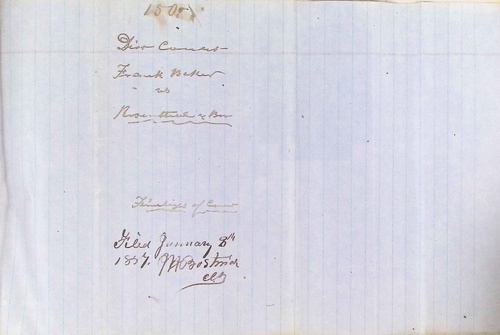 150
Dist Court
Frank Baker
vs
Rosenthal & Bro
Findings of Court
Filed January 8th
1857. JH Bostwick
clk